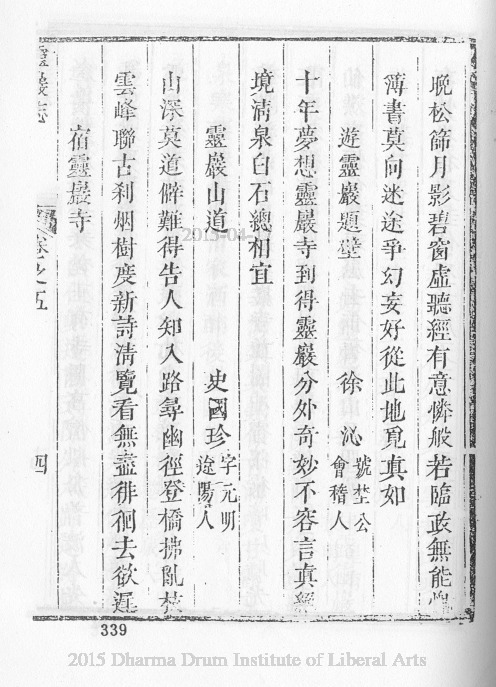 晚松篩月影碧窗虛聽經有意憐般若臨政無能愧
簿書莫向迷途爭幻妄好從此地覓真如
遊靈巖題壁 徐沁 號埜公 會稽人
十年夢想靈巖寺到得靈巖分外奇妙不容言真經
境清泉白石總相宜
靈巖山道 史國珍 字元明 遼陽人
山深莫道僻難得告人知入路尋幽徑登橋拂亂
雲峰聯古刹烟樹度新詩清覽看無盡徘徊去欲遲
宿靈巖寺
靈巖志
卷之五
四
339
2015-04-
2015 Dharma Drum Institute of Liberal Arts